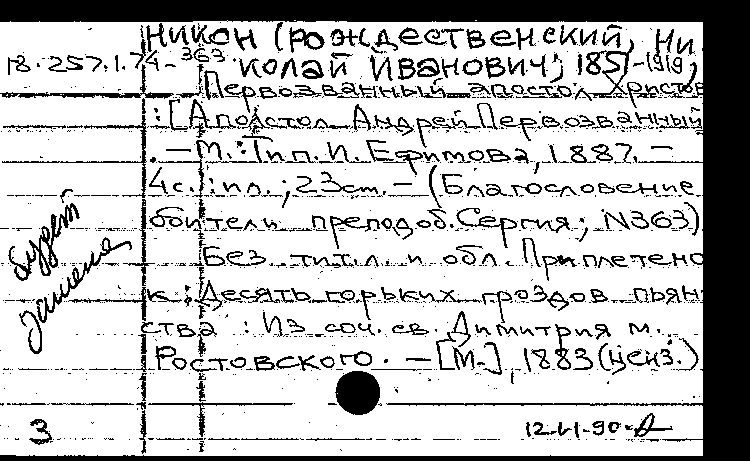 Никон (Рождественский, Ни-
18.257.1.74-363 колай Иванович; 1851-1919)
Первозванный апостол Христов
: [Апостол Андрей Первозванный]
. – М.: Тип. И. Ефимова, 1887. –
4с.: ил.; 23см. – (Благословение
обители преподоб. Сергия; N363)
Без тит. л. и обл. Приплетено
к: Десять горьких гроздов пьян-
ства : Из соч. св. Димитрия м.
Ростовского. – [М.], 1883 (ценз.)
будет
замена
3